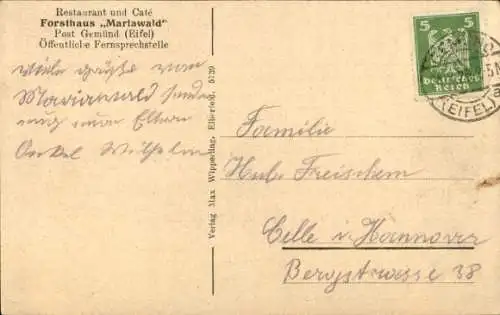 Restaurant und Café
Forsthaus „Mariawald"
Post Gemünd (Eifel)
Öffentliche Fernsprechstelle
viele grüße von
Mariawald senden
Eltern
Onkel Wilhelm
Verlag Max Wipperling, Elberfeld. 5139
5 5
Deutsches
Reich
(EIFEL) a
Familie
Hub. Freischem
Celle i. Hannover
Bergstrasse 38